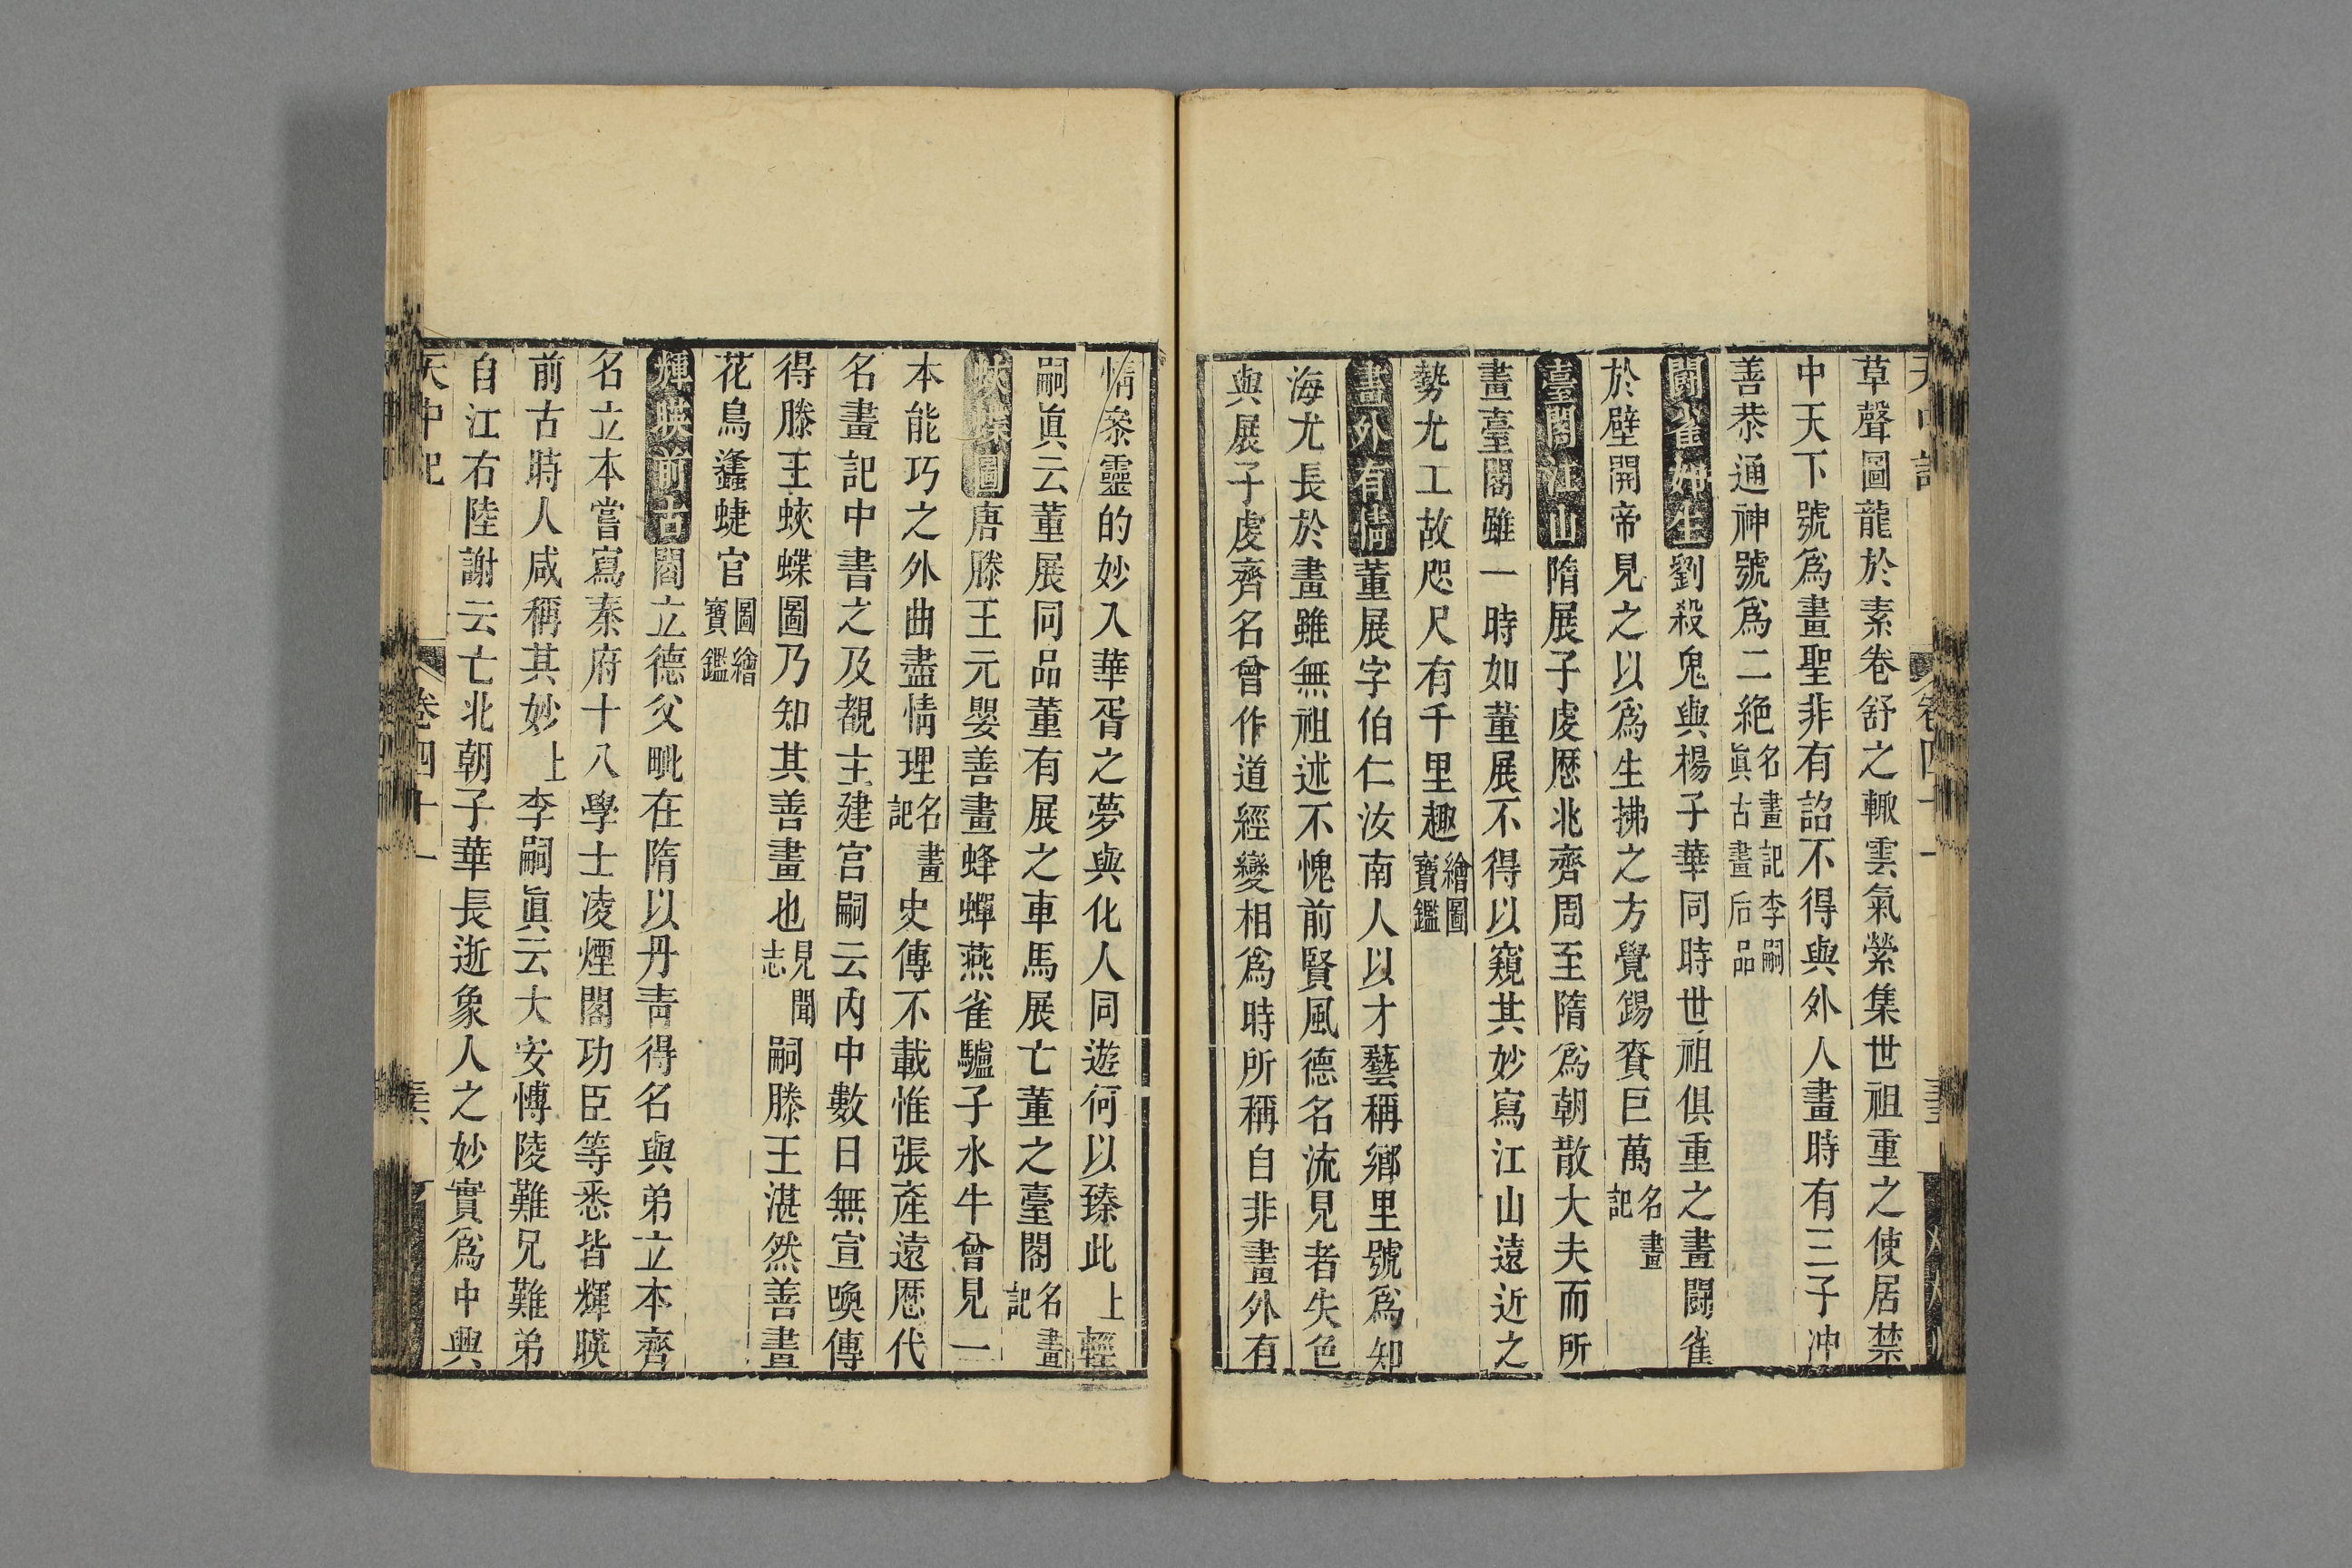 草聲圖龍於素卷舒之輒雲氣縈集世祖重之使居禁
中天下號爲畫聖非有詔不得與外人畫時有三子冲
善恭通神號爲二絶名畫記李嗣眞古畫后品
鬬雀如生劉殺鬼與楊子華同時世祖俱重之畫鬬雀
於壁開帝見之以爲生拂之方覺錫賚巨萬名畫記
臺閣江山隋展子虔歷北齊周至隋爲朝散大夫而所
畫臺閣雖一時如董展不得以窺其妙寫江山遠近之
勢尤工故咫尺有千里趣繪圖寶鑑
畫外有情董展字伯仁汝南人以才藝稱鄉里號爲知
海尤長於畫雖無祖述不愧前賢風德名流見者失色
與展子虔齊名曾作道經變相爲時所稱自非畫外有
情參靈的妙入華胥之夢與化人同遊何以臻此上
嗣眞云董展同品董有展之車馬展亡董之臺閣名畫記
蛺蝶圖唐滕王元嬰善畫蜂蟬燕雀驢子水牛曾見一
本能巧之外曲盡情理名畫記史傳不載惟張彥遠歷代
名畫記中書之及覩王建宮嗣云内中數日無宣喚傳
得滕王蛺蝶圖乃知其善畫也見聞志嗣滕王湛然善畫
花鳥蠭蜨官圖繪寶鑑
輝映前古閻立德父毗在隋以丹靑得名與弟立本齊
名立本嘗寫秦府十八學士凌煙閣功臣等悉皆輝暎
前古時人咸稱其妙上李嗣眞云大安博陵難兄難弟
自江右陸謝云亡北朝子華長逝象人之妙實爲中興
天中記 卷四十一